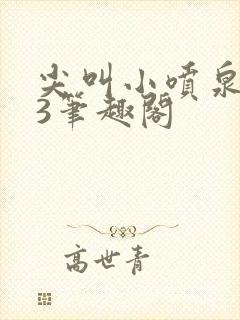 尖叫小喷泉
3笔趣阁
高世青